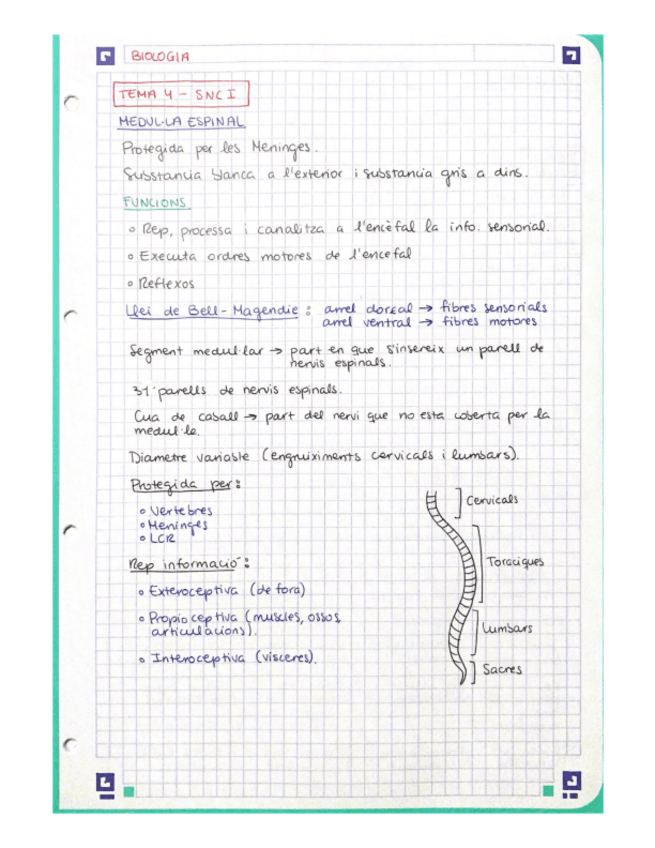 BIOLOGIA
TEMA 4 - SNC I
MEDUL·LA ESPINAL
Protegida per les Meninges.
Substancia blanca a l'exterior i substancia gris a dins.
FUNCIONS
Rep, processa i canalitza a l'encèfal la info. sensorial.
Executa ordres motores de l'encefal
Reflexos
Llei de Bell-Magendie: arrel dorsal → fibres sensorials
arrel ventral → fibres motores
Segment medul·lar → part en que s'insereix un parell de
nervis espinals.
31 parells de nervis espinals.
Cua de caball → part del nervi que no esta coberta per la
medul·la.
Diametre variable (engruiximents cervicals i lumbars).
Protegida per:
Vertebres
Meninges
LCR
Rep informació:
Exteroceptiva (de fora)
Propioceptiva (muscles, ossos,
articulacions).
Interoceptiva (visceres).
Cervicals
Toraciques
Lumbars
Sacres